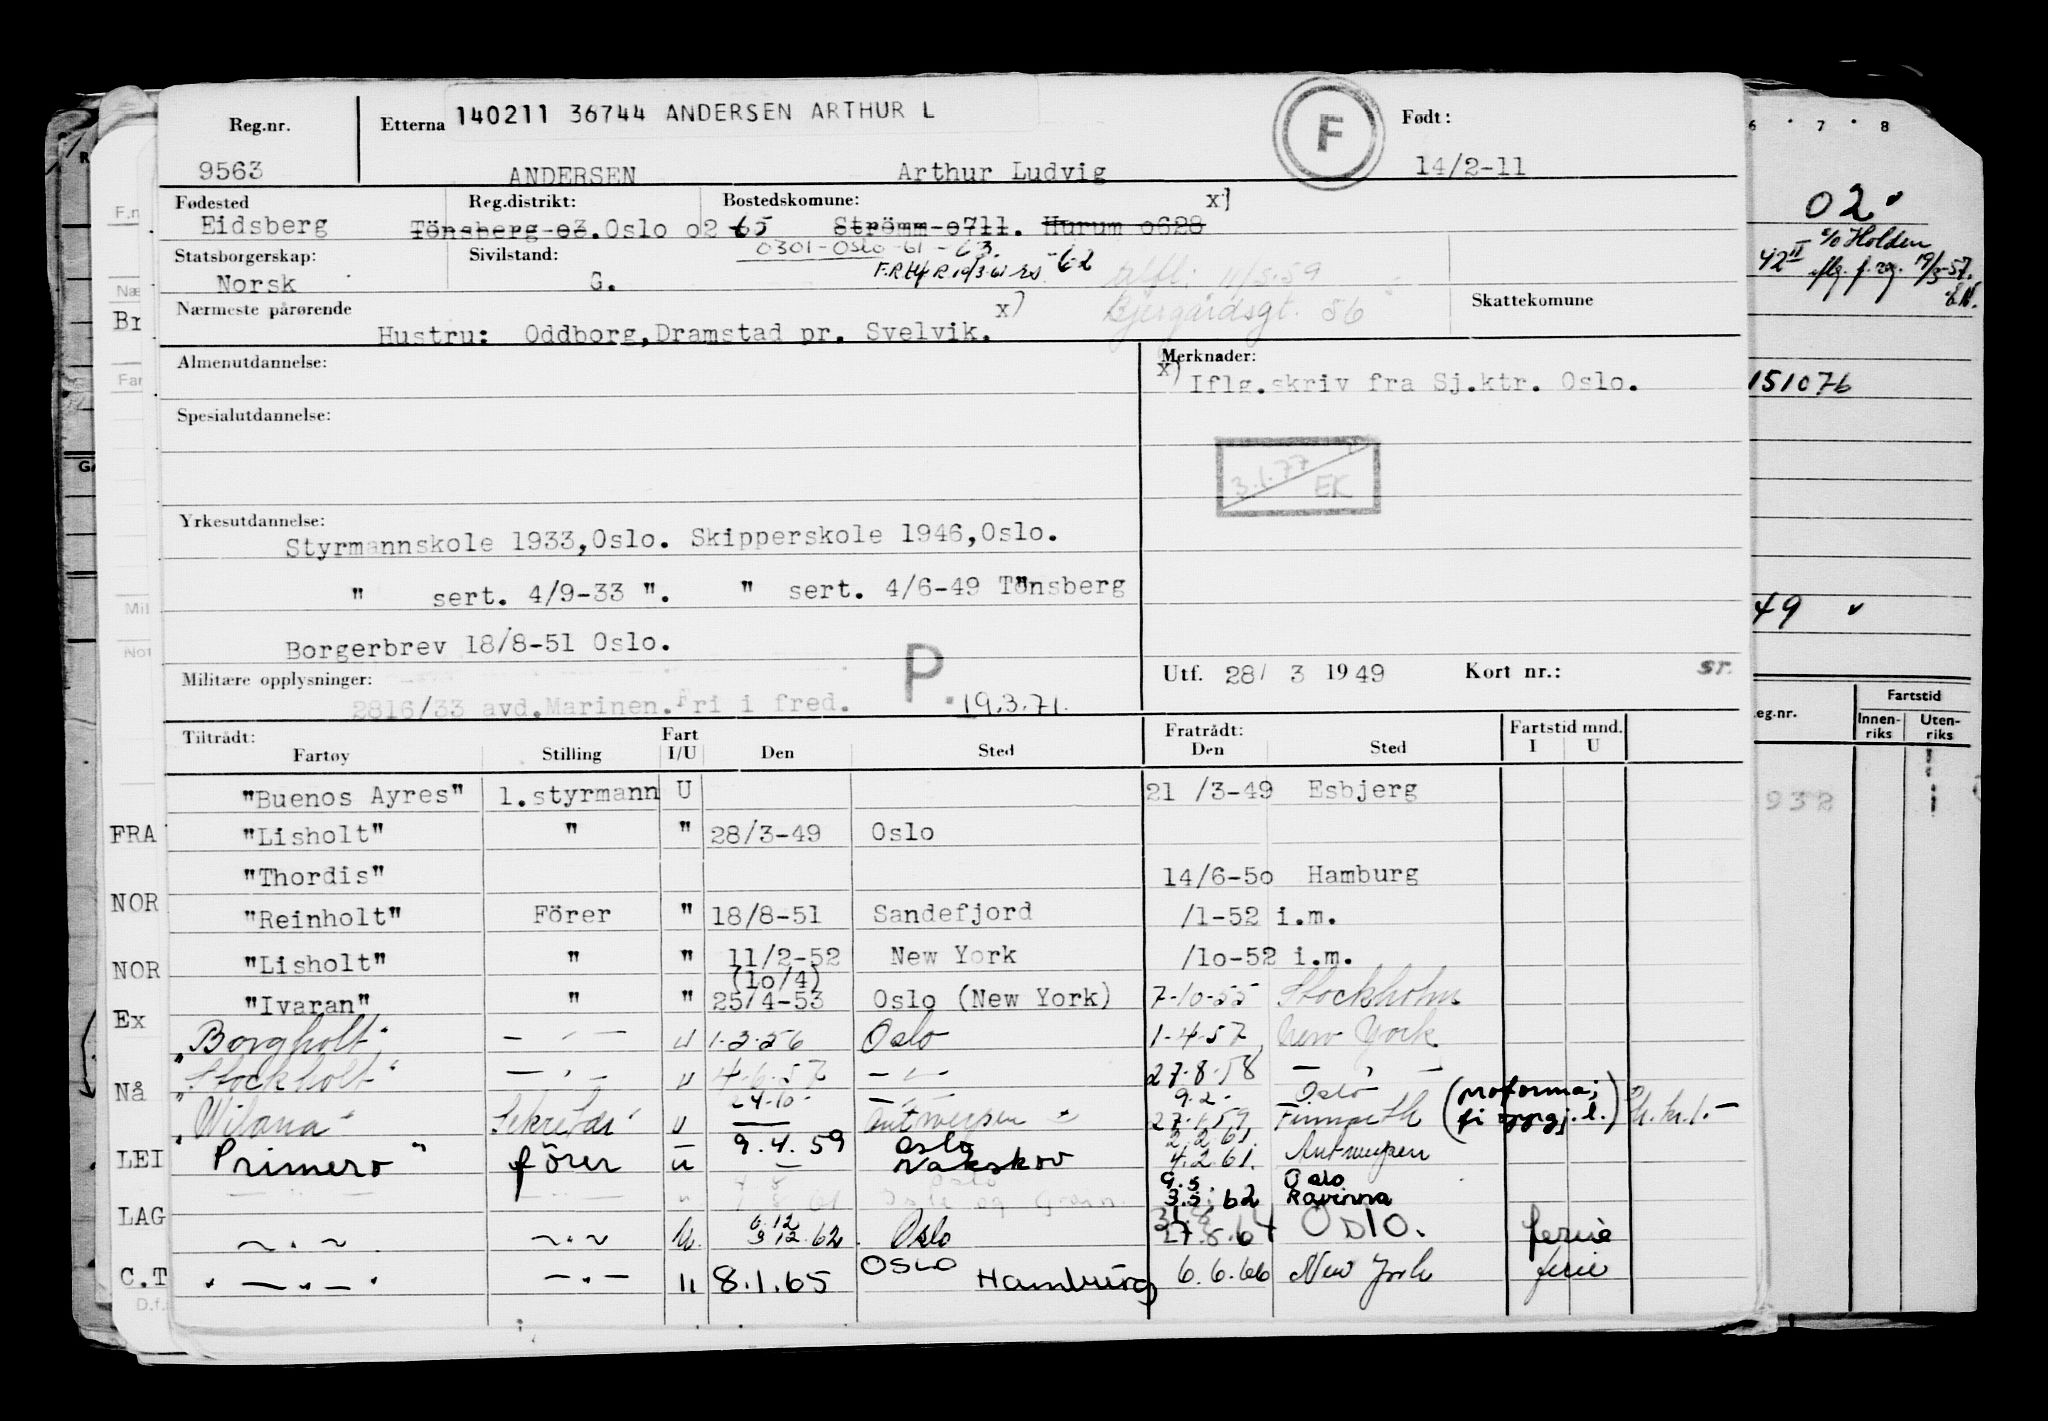 Reg.nr. Etterna 140211 36744 ANDERSEN ARTHUR L F Født:
9563 ANDERSEN Arthur Ludvig 14/2-11
Fødested Reg.distrikt: Bostedskomune: x)
Eidsberg Tönsberg 03.Oslo 02 65 Strömm 0711. Hurum 0628
0301-Oslo-61-63.
Statsborgerskap: Sivilstand: 62
Norsk G.
Nærmeste pårørende x) Bjergårdsgt. 56 Skattekomune
Hustru: Oddborg,Dramstad pr. Svelvik.
Almenutdannelse: Merknader:
x) Iflg.skriv fra Sj.ktr. Oslo.
Spesialutdannelse:
3.1.77 EK
Yrkesutdannelse:
Styrmannskole 1933,Oslo. Skipperskole 1946,Oslo.
" sert. 4/9-33 ". " sert. 4/6-49 Tönsberg
Borgerbrev 18/8-51 Oslo.
Militære opplysninger: P. Utf. 28/ 3 1949 Kort nr.: sr.
2816/33 avd.Marinen.Fri i fred. 19.3.71.
Tiltrådt: Fart Fratrådt: Fartstid mnd.
Fartøy Stilling I/U Den Sted Den Sted I U
"Buenos Ayres" 1.styrmann U 21 /3-49 Esbjerg
"Lisholt" " " 28/3-49 Oslo
"Thordis" 14/6-50 Hamburg
"Reinholt" Förer " 18/8-51 Sandefjord /1-52 i.m.
"Lisholt" " " 11/2-52 New York /10-52 i.m.
(10/4)
"Ivaran" " " 25/4-53 Oslo (New York) 7-10-55 Stockholm
"Borgholt" — " — u 1.3.56 Oslo 1-4-57 New York
"Stockholt" — " — u 4.6.57 — " — 27.8.58 — " —
24.10. 9.2. Oslo (proforma;
"Wilana" Sekretær u Antwerpen 27.1.59 fi oppgj.l.)
9.4.59 Oslo 2.2.61
"Primero" förer u — Nakskov 4.2.61. Antwerpen
9.5. Oslo
3.5.62 Ravenna
6.12 31.8
— " — — " — u. 9.12.62. Oslo 27.8.64 OSLO. ferie
" — " — " — " — " 8.1.65 OSLO Hamburg 6.6.66 New York ferie
FRA
NOR
NOR
Ex
Nå
LEI
LAG
C.T
D.f.
F.n
Næ
Br
Far
Mil
Not
6 · 7 · 8
02.
c/o Holden
42 II 19/3-57.
151076
49
eg.nr. Fartstid
Innen-riks Uten-riks
932